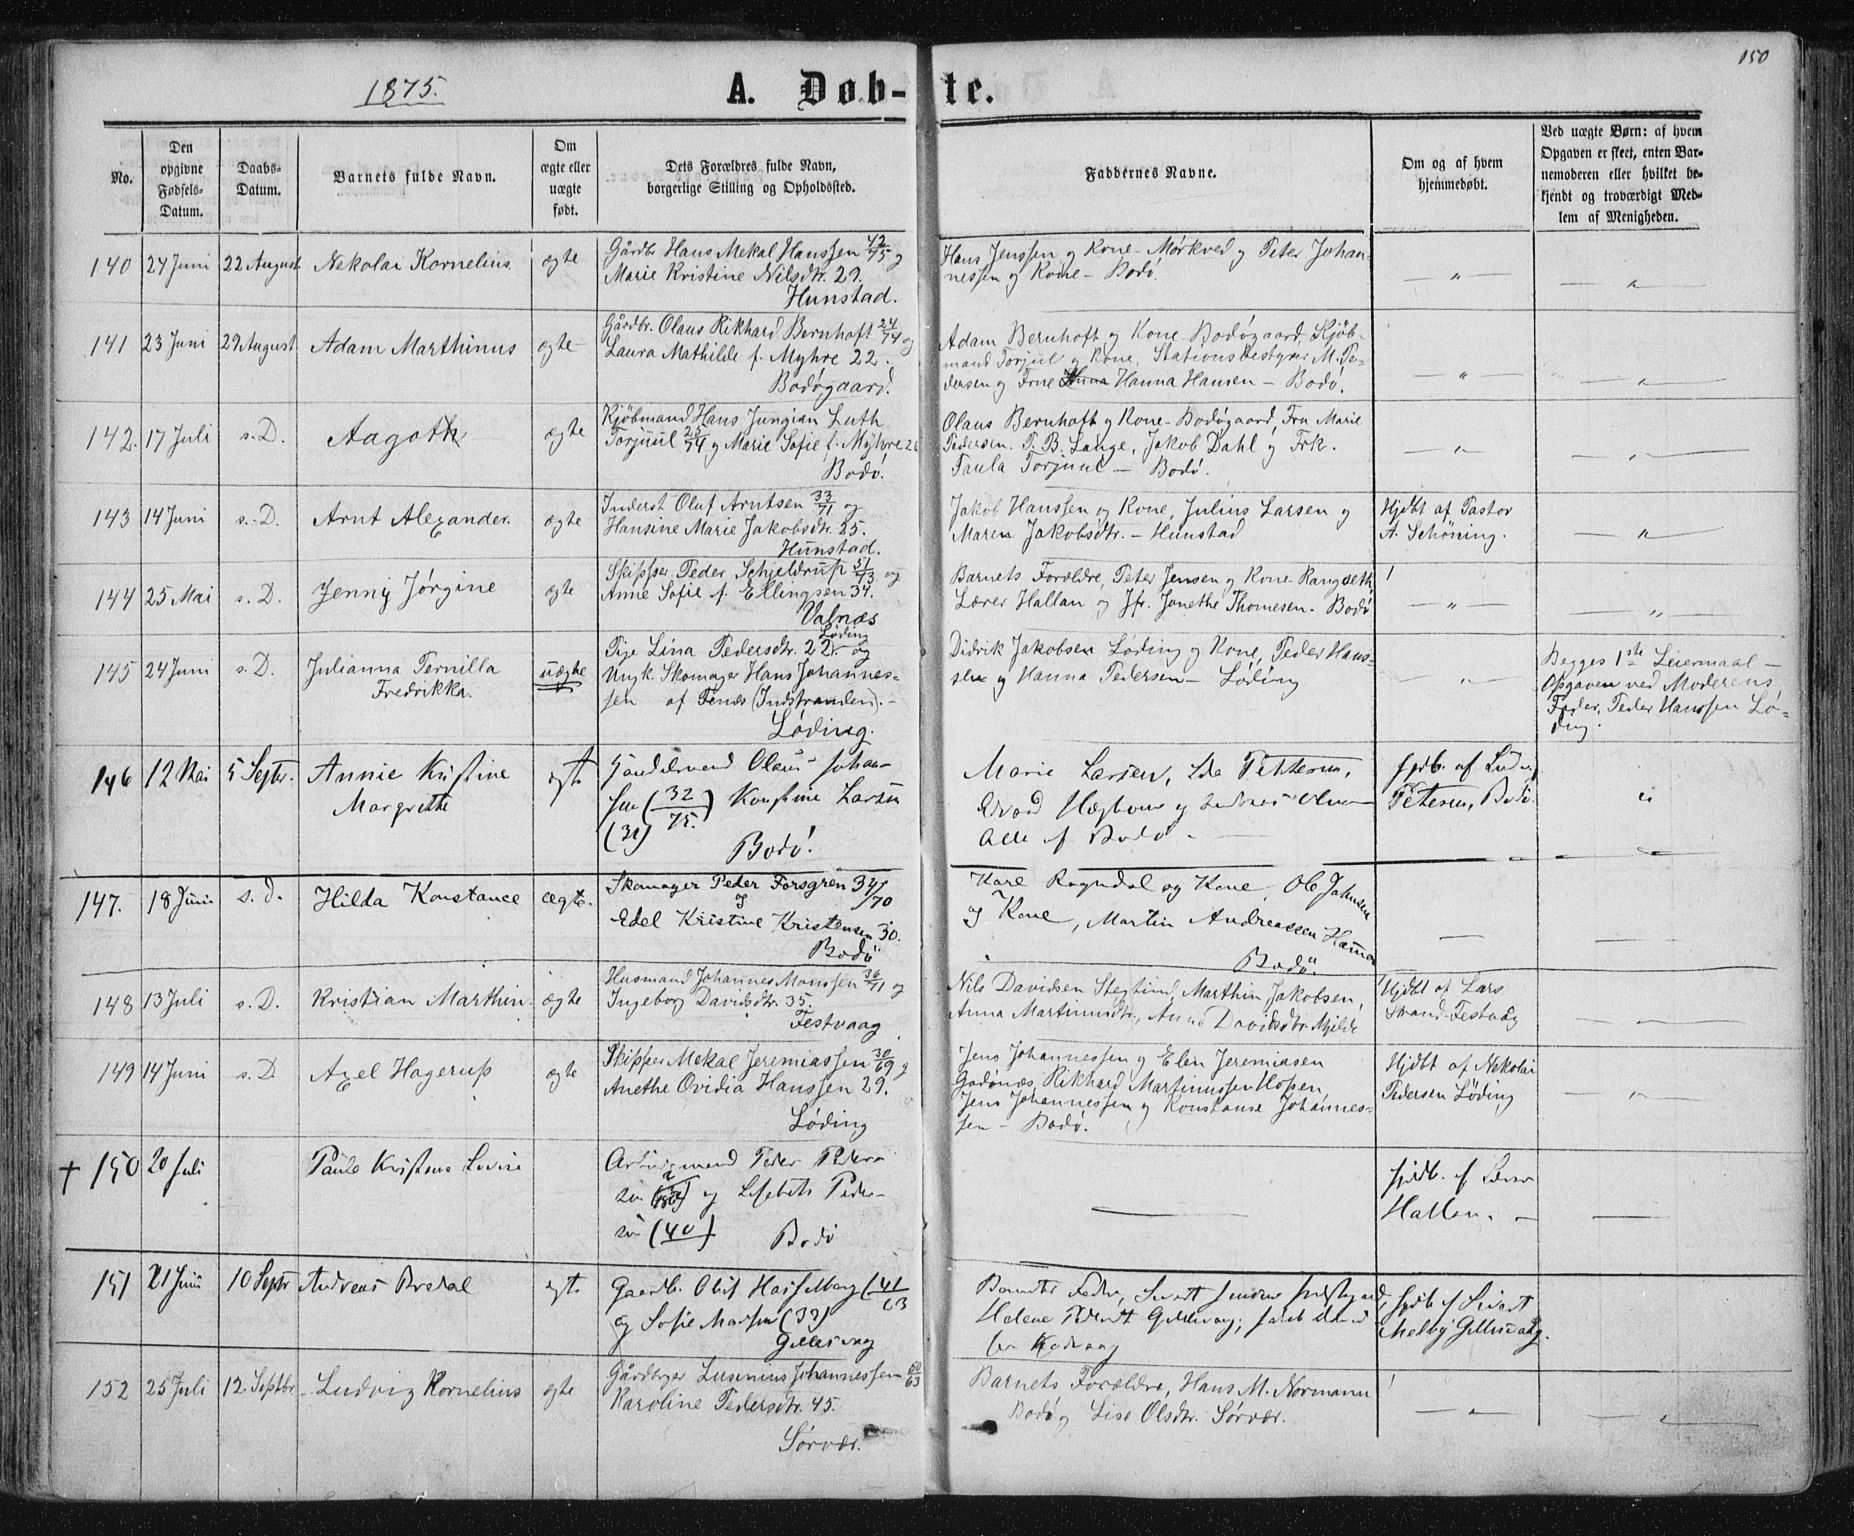 150
1875.
A. Døb-te.
No.
Den
opgivne
Fødsels-
Datum.
Daabs-
Datum.
Barnets fulde Navn.
Om
ægte eller
uægte
født.
Dets Forældres fulde Navn,
borgerlige Stilling og Opholdssted.
Faddernes Navne.
Om og af hvem
hjemmedøbt.
Ved uægte Børn: af hvem
Opgaven er skeet, enten Bar-
nemoderen eller hvilket be-
kjendt og troværdigt Med-
lem af Menigheden.
140 24 Juni 22 August Nekolai Kornelius ægte
Gårdbr Hans Mekal Hanssen 42/75 og
Marie Kristine Nilsdtr. 29.
Hunstad.
Hans Jenssen og Kone - Mørkved og Peter Johan-
nessen og Kone - Bodø.
141 23 Juni 29 August Adam Marthinus ægte
Gårdbr. Olaus Rikhard Bernhoft 24/74 og
Laura Mathilde f. Myhre 22.
Bodøgaard.
Adam Bernhoft og Kone - Bodøgaard, Kjøb-
mand Torjuul og Kone, Stationsbestyrer M. Pe-
dersen og Frue Hanna Hansen - Bodø.
142. 17 Juli s. D. Aagoth ægte
Kjøbmand Hans Jungian Luth
Torjuul 25/74 og Marie Sofie f. Myhre 26
Bodø.
Olaus Bernhoft og Kone - Bodøgaard, Fru Marie
Pedersen. P. B. Lange, Jakob Dahl og Frk.
Paula Torjuul - Bodø.
143 14 Juni s. D. Arnt Alexander. ægte
Inderst Oluf Arntsen 33/71 og
Hansine Marie Jakobsdtr. 25.
Hunstad.
Jakob Hanssen og Kone, Julius Larsen og
Maren Jakobsdtr. - Hunstad
Hjdbt af Pastor
A. Schöning.
144 25 Mai s. D. Jenny Jørgine ægte
Skipper Peder Schjeldrup 51/43 og
Anne Sofie f. Ellingsen 34.
Valnæs
Barnets Forældre, Peter Jensen og Kone
Lærer Hallan og Jfr. Jonethe Thomesen. Bodø
145 24 Juni s. D. Julianna Pernilla
Fredrikka. uægte
Løding
Pige Lina Pedersdtr. 22. og
Ungk. Skomager Hans Johannes-
sen af Fenes (Indstranden). -
Løding.
Didrik Jakobsen Løding og Kone, Peder Hans-
sen og Hanna Pedersen - Løding
Begges 1ste Leiermaal -
Opgaven ved Moderens
Fader, Peder Hanssen Lø-
ding.
146 12 Mai 5 Septr. Annie Kristine
Margrethe ægte
Handelsmand Olaus Johan-
sen (32/75.) Konstine Larsen
(31)
Bodø.
Marie Larsen, Ida Pettersen,
Alle af Bodø -
hjdb. af
Petersen, Bodø
147. 18 Juni s. D. Hilda Konstance ægte.
Skomager Peder Forsgren 34/70
og
Edel Kristine Kristensen 30.
Bodø
Karl Rogndal og Kone, Ole Johnsen
og Kone, Martin Andreassen
Bodø.
148 13 Juli s. D. Kristian Marthin ægte
Husmand Johannes Monssen 36/71 og
Ingeborg Davidsdtr. 35.
Festvaag
Nils Davidsen Stegtind, Marthin Jakobsen,
Anna Martinusdtr., Anna Davidsdtr. Mjelde
Hjdbt af Lars
Strand-Festvåg
149 14 Juni s. D. Axel Hagerup ægte
Skipper Mekal Jeremiassen 30/69 og
Anethe Ovidia Hanssen 29.
Løding
Jens Johannessen og Elen Jeremiasen
Godønæs, Rikhard Martinussen Hopen,
Jens Johannessen og Konstanse Johannes-
sen - Bodø.
Hjdbt af Nekolai
Pedersen Løding
+ 150 20 Juli Paule Kristine Lovise
Arbeidsmand Peder Peder-
sen og Lisebeth Peder-
sen (40)
Bodø
hjdb. af Lærer
Hallan. -
151 21 Juni 10 Septr Andreas Bredal ægte
Gaardb. Olif Hasselberg (41/63
og Sofie Marsen (32)
Gillesvaag
Barnets Fader, Sivert Jensen
Helene Pedersdt Gillesvaag; Jakob
hjdb af Sivert
Melby Gillesvaag.
152 25 Juli 12 Septbr. Ludvig Kornelius ægte
Gårdbrger Lusinius Johannessen 50/63
Karoline Pedersdtr. 45.
Sørvær.
Barnets Forældre, Hans M. Normann
Bodø og Lise Olsdtr. Sørvær.